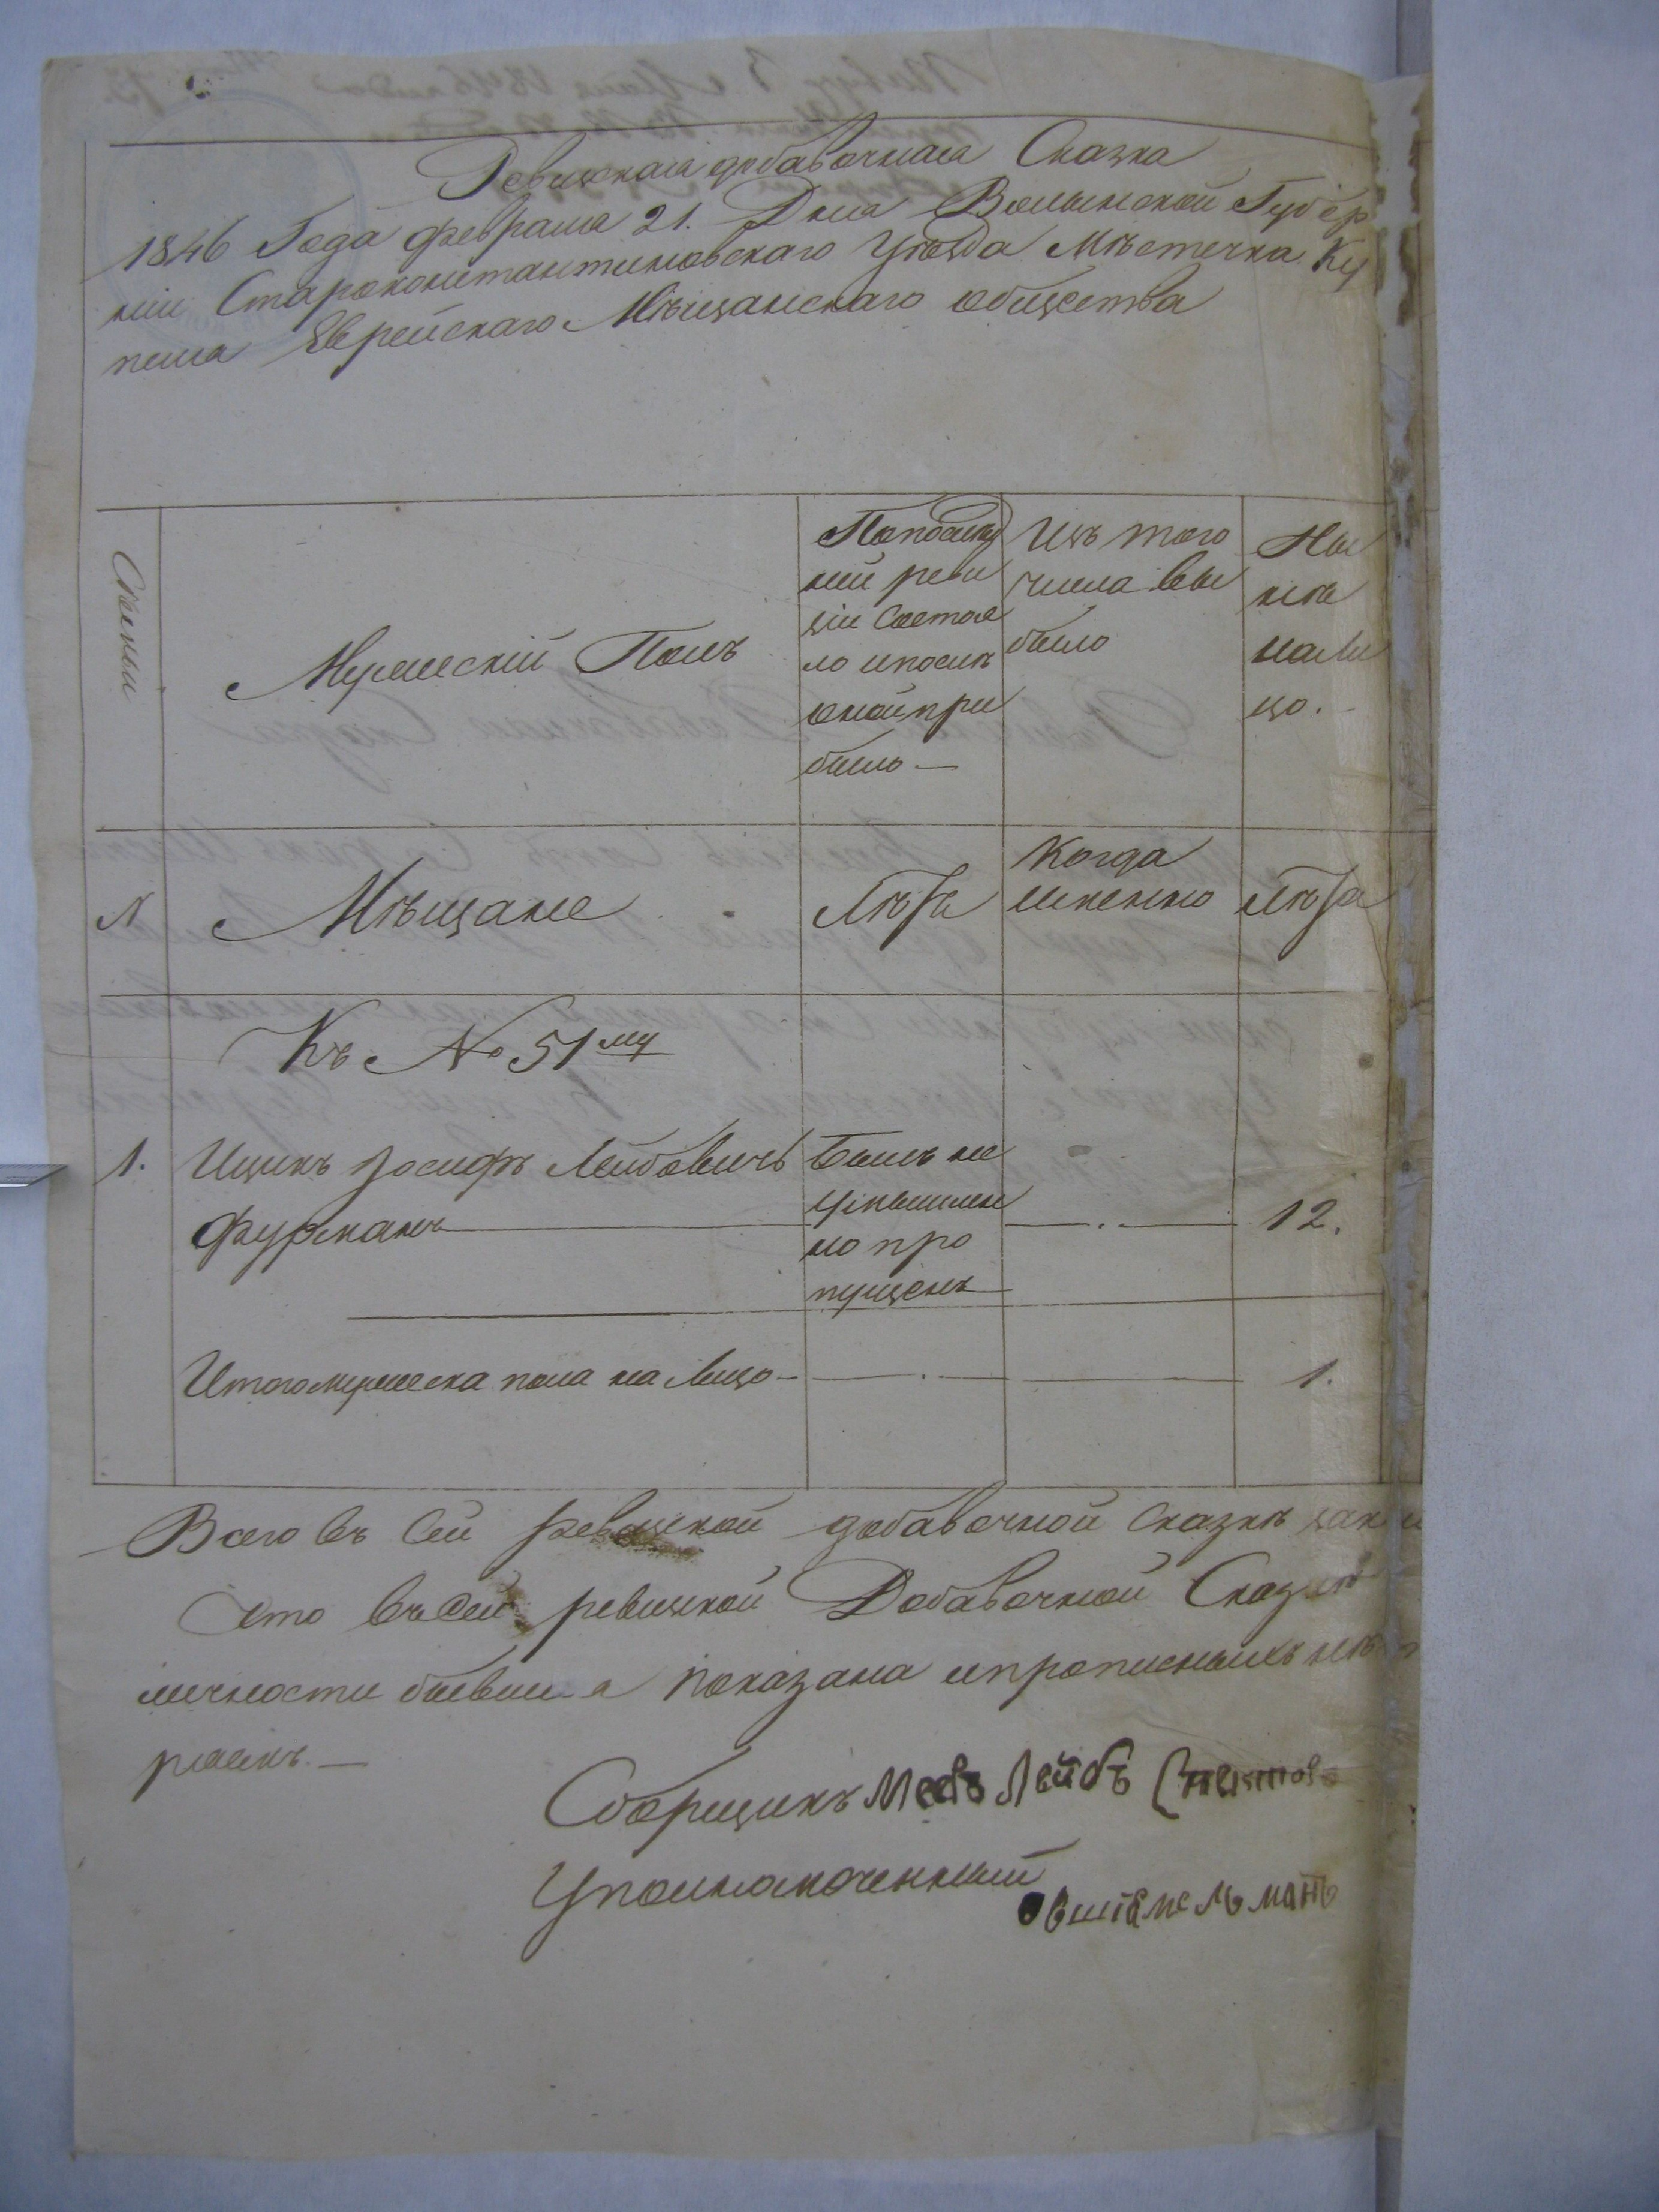 Ревизская добавочная Сказка
1846 Года февраля 21. Дня Волынской Губер
ніи Староконстантиновскаго Уѣзда Мѣстечка Ку
пеля Еврейскаго Мѣщанскаго общества
Семьи
Мужескій Полъ
По послѣд
ней реви
зіи состоя
ло и послѣ
оной при
было —
Изъ того
числа вы
было
Ны
нѣ
на ли
цо.
№
Мѣщане
Лѣта
Когда
именно
Лѣта
Къ № 51му
1.
Ицикъ Іосифъ Лейбовичъ
Фурманъ
Былъ не
умышлен
но про
пущенъ
12.
Итого мужеска пола на лицо
1.
Всего въ сей ревизской добавочной сказкѣ
Что въ сей ревизской Добавочной Сказкѣ
личности бывшія показана и прописныхъ
Сборщикъ Лейбъ
Уполномоченный